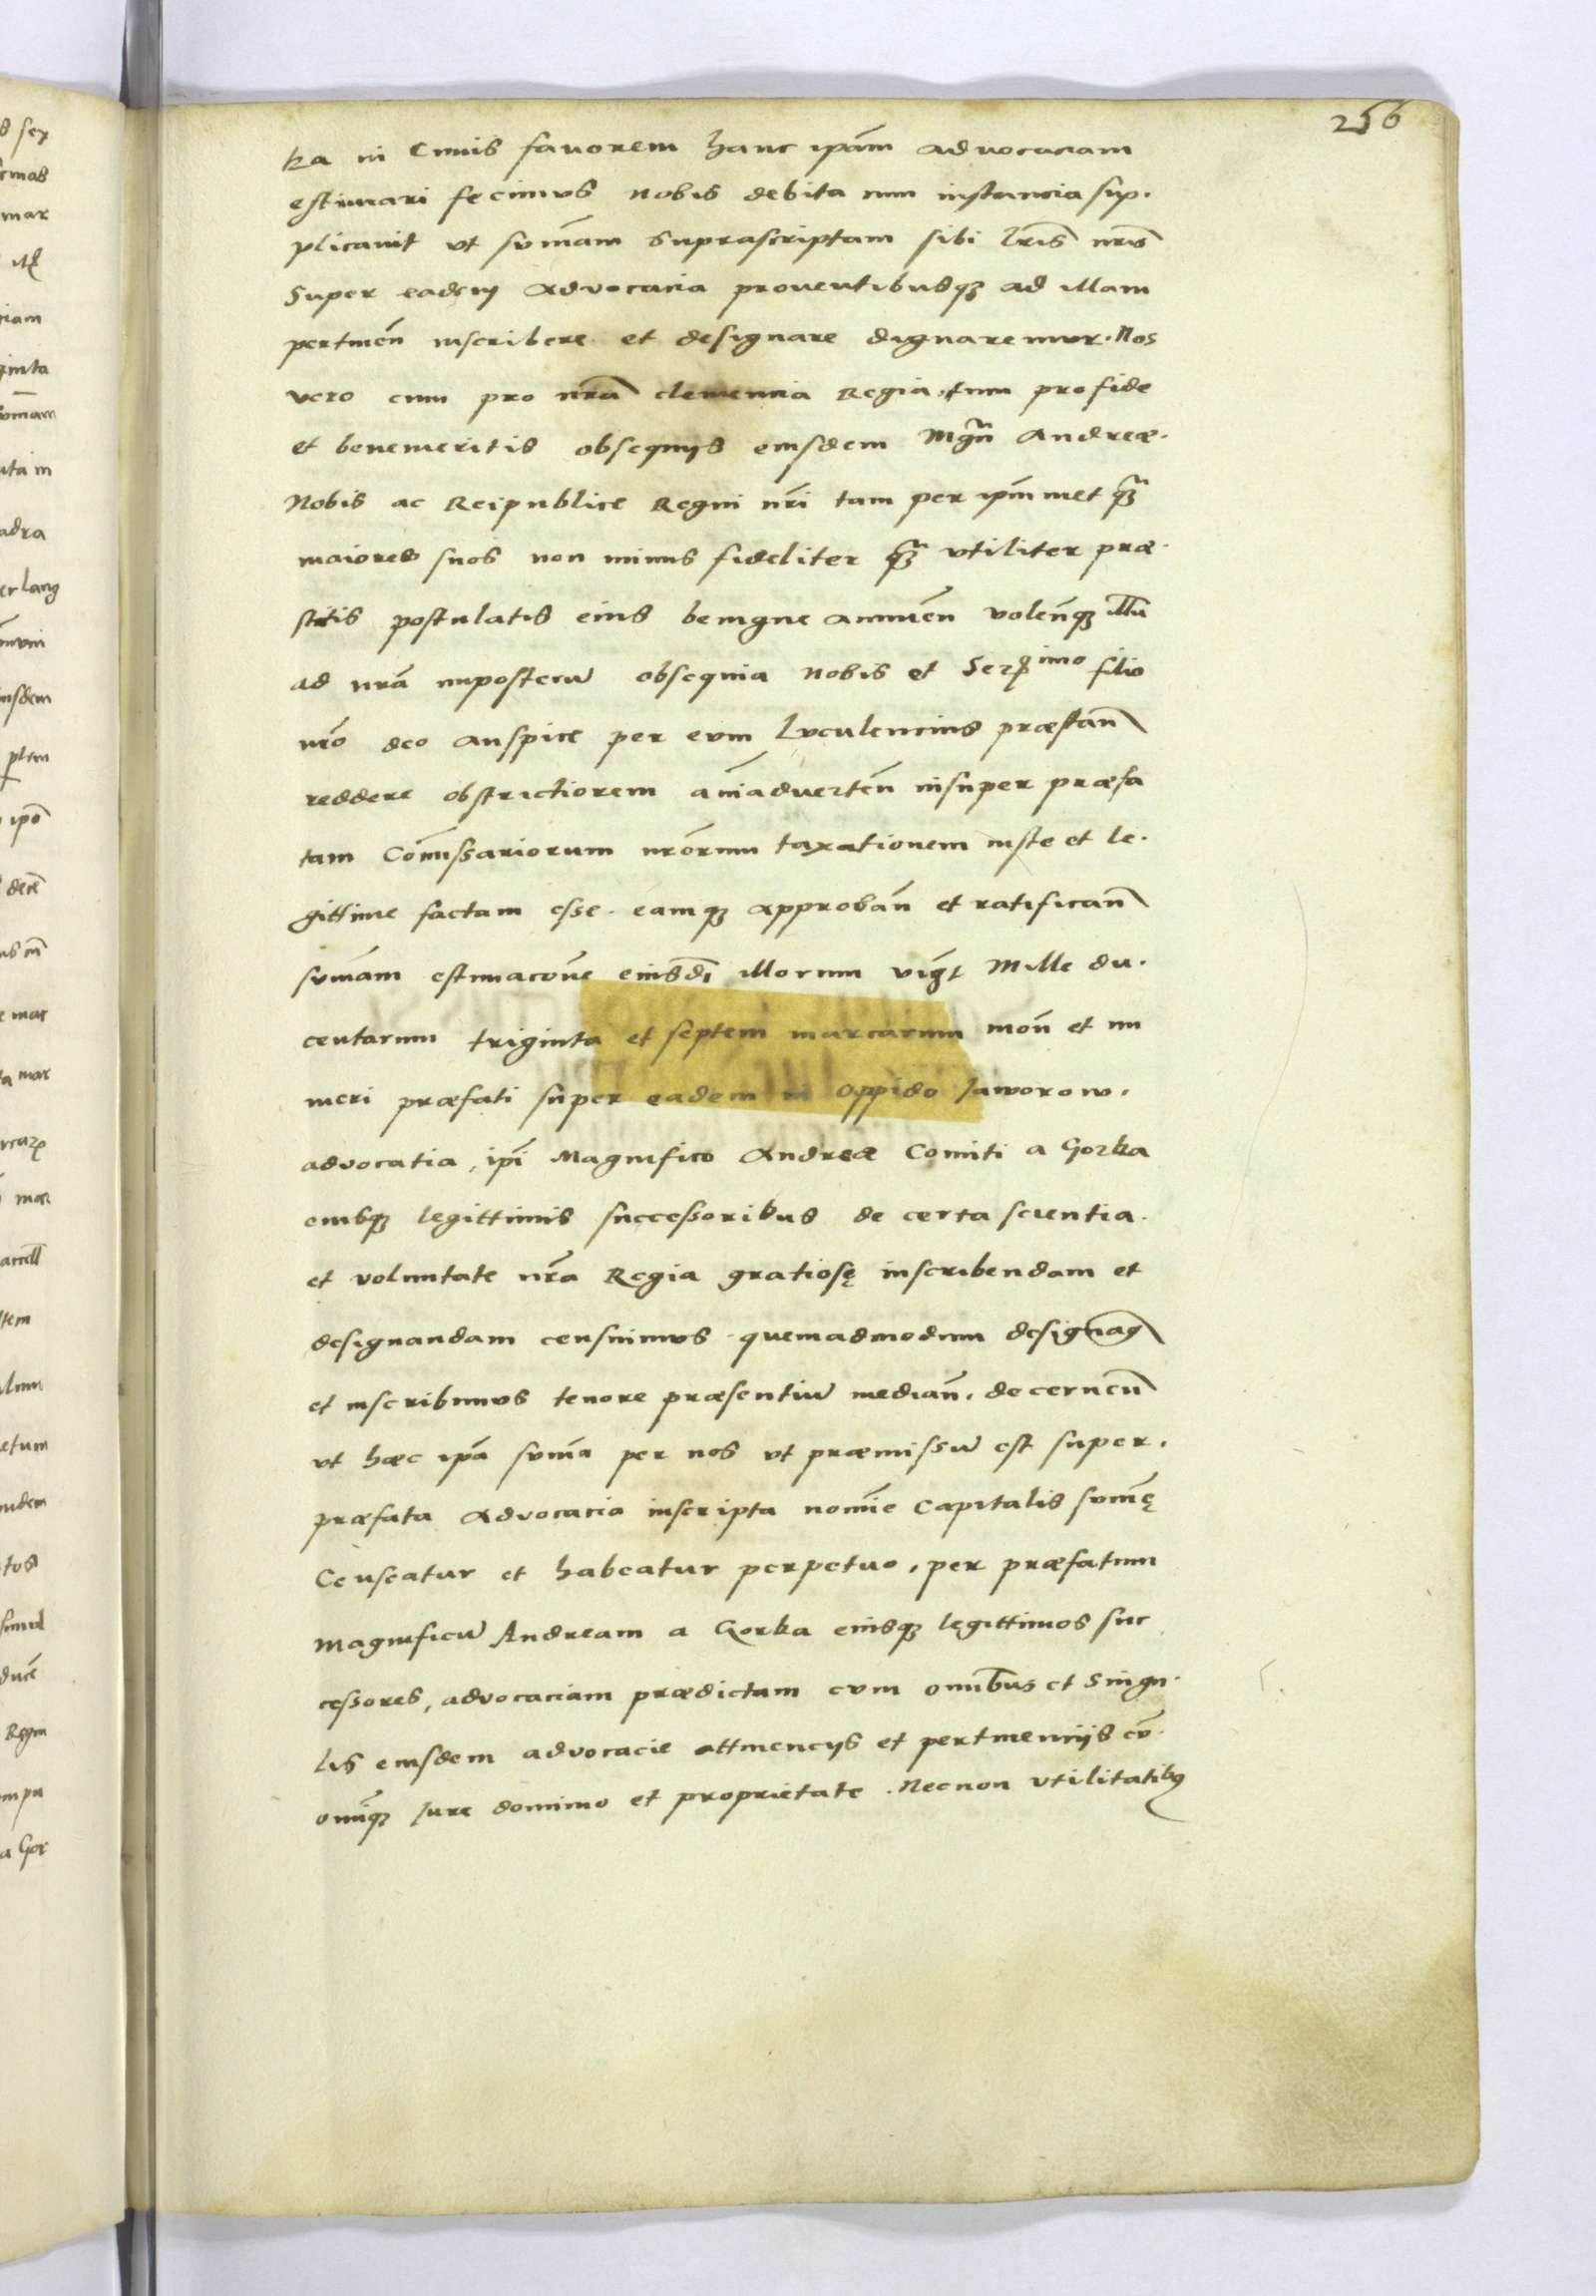 256
ka in Cuius fauorem hanc ipãm advocaciam
estimari fecimus nobis debita cum instancia sup.
plicauit vt sumãm suprascriptam sibi lris̃ nris̃
super eadem Advocacia prouentibusq3 ad illam
pertineñ inscribere et designare dignaremur. Nos
vero cum pro nrã clemencia Regia, tum pro fide
et benemeritis obsequijs eiusdem Mgñ Andreæ.
Nobis ac Reipublice Regni nrĩ tam per ipm̃met q3̃
maiores suos non minus fideliter q3̃ vtiliter præ.
stitis postulatis eius benigne annueñ voleñq3 illũ
ad nrã imposterũ obsequia nobis et Serͫimo filio
nrõ deo auspice per eum luculencius præstañ
reddere obstrictiorem aĩadverteñ insuper præfa
tam Com̃issariorum nrõrum taxationem iuste et le.
gittime factam esse. eamq3 approbañ et ratificañ
sumãm estimacõne eiusdĩ illorum vigt̃ Mille du.
centarum triginta et septem marcarum moñ et nu
meri præfati super eadem in oppido Jaworow.
advocatia, ipĩ Magnifico Andreæ Comiti a Gorka
eiusq3 legittimis successoribus de certa scientia.
et voluntate nrã Regia gratiosę inscribendam et
designandam censuimus. quemadmodum designaq̃
et inscribimus tenore præsentiũ mediañ. decerneñ
vt hæc ipã sumã per nos vt præmissũ est super.
præfata Advocacia inscripta nomĩe Capitalis sumę̃
Censeatur et habeatur perpetuo, per præfatum
Magnificũ Andream a Gorka eiusq3 legittimos suc
cessores, advocaciam prædictam cum omnibus et singu.
lis eiusdem advocacie attinencijs et pertinencijs cũ.
omniq3 Jure dominio et proprietate. Necnon vtilitatibus